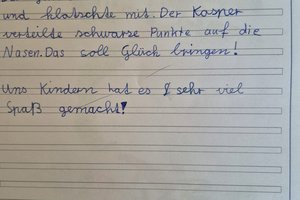 und klatschte mit. Der Kasper
verteilte schwarze Punkte auf die
Nasen. Das soll Glück bringen!
Uns Kindern hat es sehr viel
Spaß gemacht!